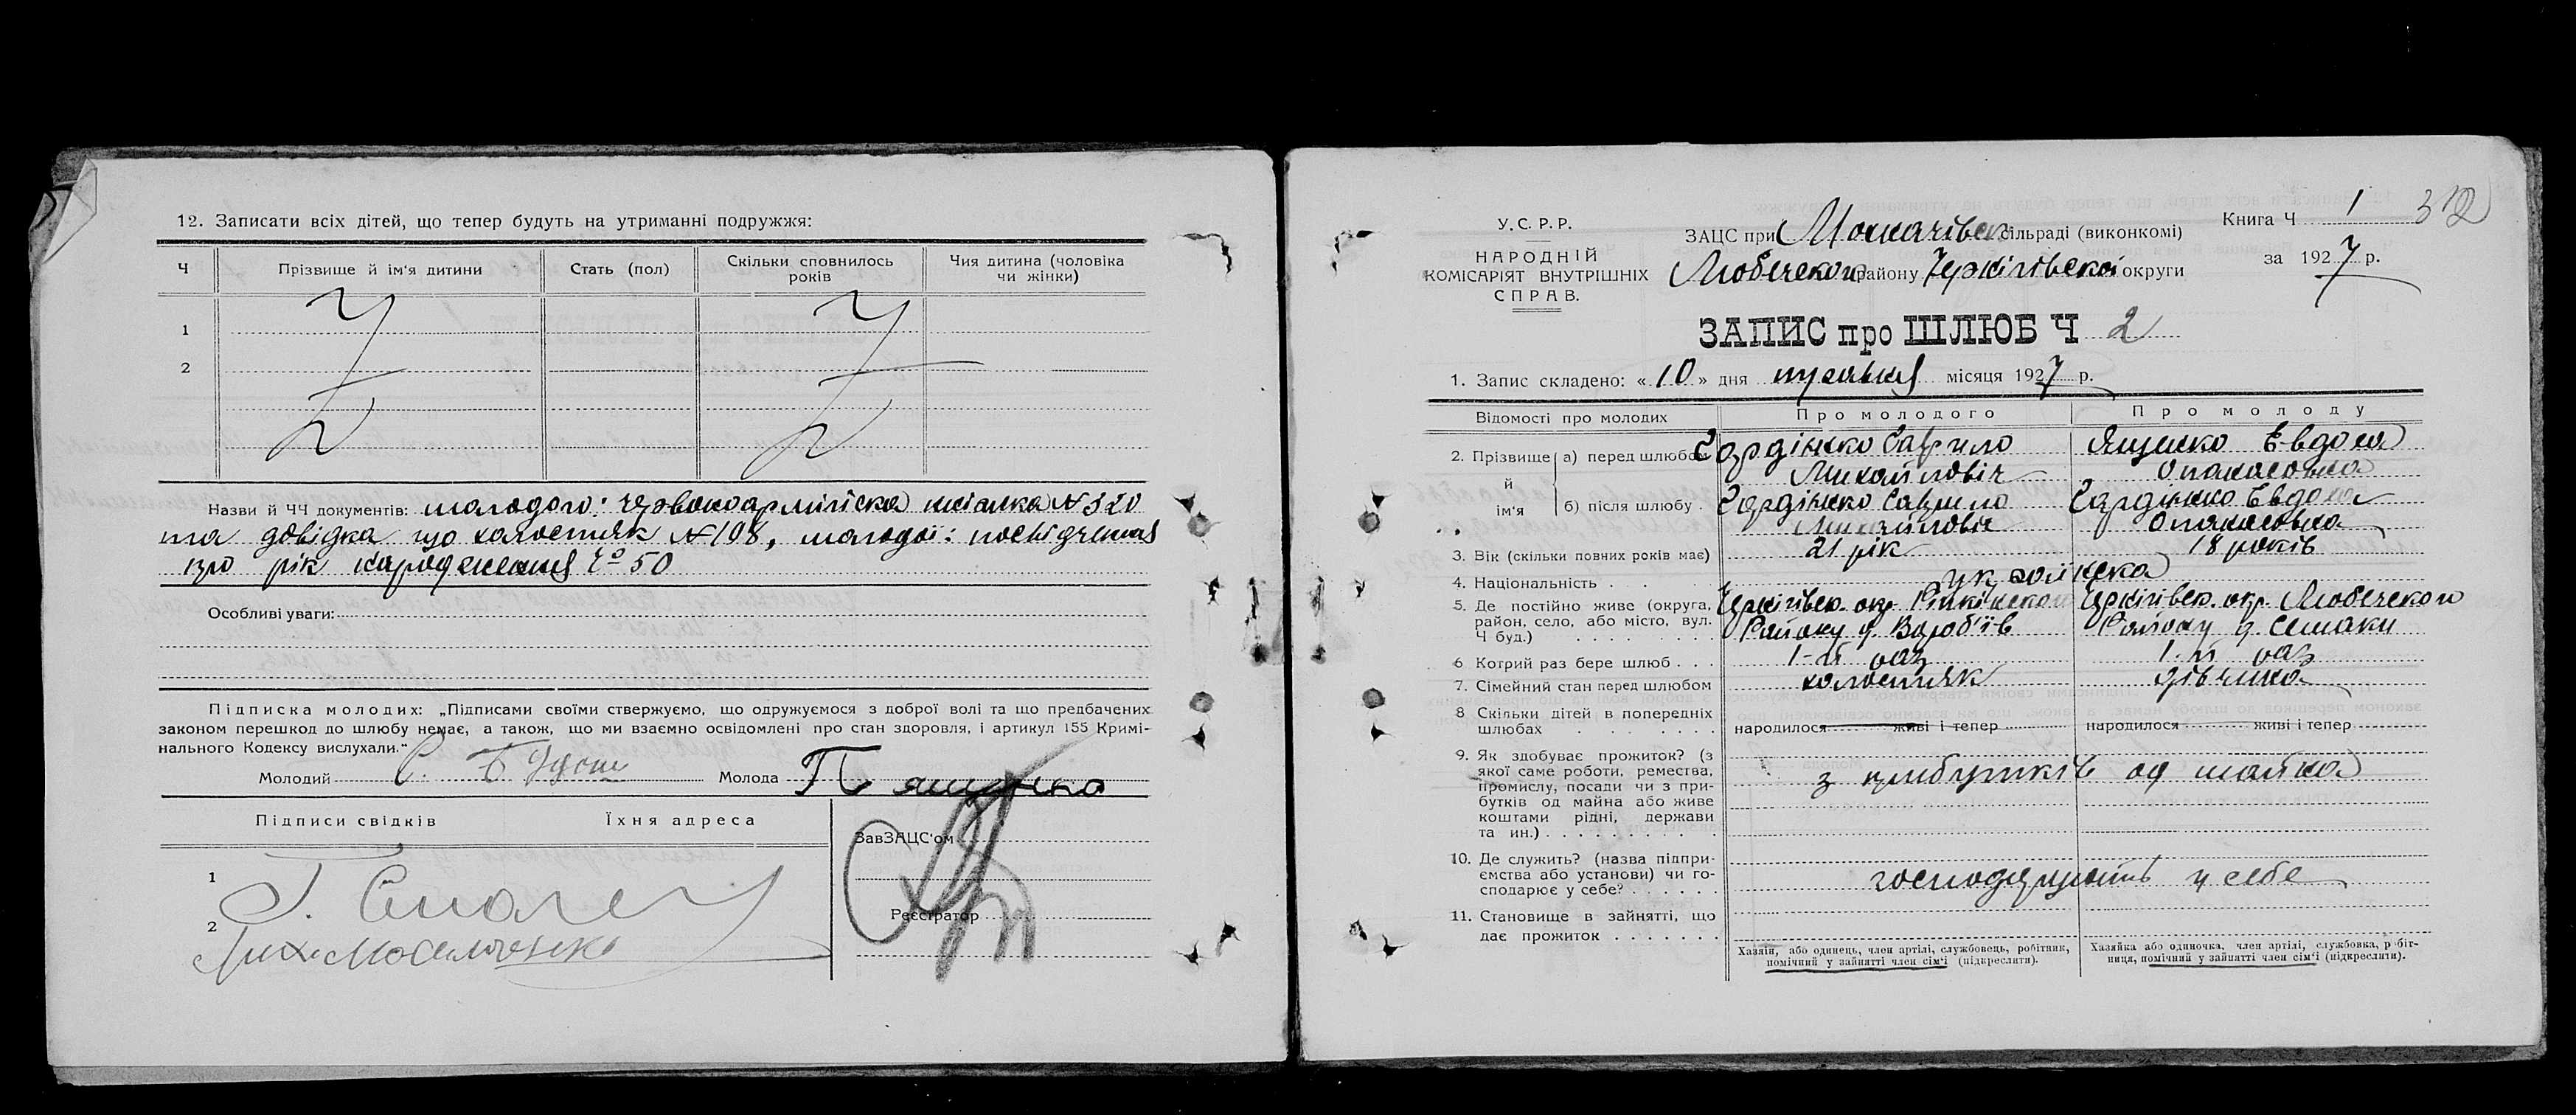 12. Записати всіх дітей, що тепер будуть на утриманні подружжя:
Ч Прізвище й ім'я дитини Стать (пол) Скільки сповнилось років Чия дитина (чоловіка чи жінки)
1
2
Назви й ЧЧ документів: молодого: червоноармійска книжка №320
та довідка що холостяк №198, молодої: посвідчення
про рік народження Ч° 50
Особливі уваги:
Підписка молодих: „Підписами своїми стверджуємо, що одружуємося з доброї волі та що предбачених
законом перешкод до шлюбу немає, а також, що ми взаємно освідомлені про стан здоровля, і артикул 155 Кримі-
нального Кодексу вислухали."
Молодий Молода П Ященко
Підписи свідків Їхня адреса
ЗавЗАЦС'ом
1
Реєстратор
2
У. С. Р. Р.
НАРОДНІЙ
КОМІСАРІЯТ ВНУТРІШНІХ
СПРАВ.
ЗАЦС при сільраді (виконкомі)
Любечского району Чернігівскої округи
Книга Ч 1 312
за 1927 р.
ЗАПИС про ШЛЮБ Ч 2
1. Запис складено: «10» дня травня місяця 1927 р.
Відомості про молодих Про молодого Про молоду
2. Прізвище й ім'я а) перед шлюбом Гордієнко Гаврило Ященко Евдоха
Михайловіч Опанасовна
б) після шлюбу Гордієнко Гаврило Гордієнко Евдоха
Михайловіч Опанасовна
3. Вік (скільки повних років має) 21 рік 18 років
4. Національність українска
5. Де постійно живе (округа, Чернігівск. окр. Ріпкінского Чернігівск. окр. Любечского
район, село, або місто, вул. Району д. Вороб'їв Району д. Семаки
Ч буд.)
6. Котрий раз бере шлюб 1-й раз 1-й раз
7. Сімейний стан перед шлюбом холостяк дівчина
8 Скільки дітей в попередніх
шлюбах народилося живі і тепер народилося живі і тепер
9. Як здобуває прожиток? (з
якої саме роботи, ремества, з прибутків од майна
промислу, посади чи з при-
бутків од майна або живе
коштами рідні, держави
та ин.)
10. Де служить? (назва підпри-
ємства або установи) чи го- господарюють у себе
сподарює у себе?
11. Становище в зайнятті, що
дає прожиток
Хазяїн, або одинець, член артілі, службовець, робітник,
помічний у зайнятті член сім'ї (підкреслити).
Хазяйка або одиночка, член артілі, службовка, робіт-
ниця, помічний у зайнятті член сім'ї (підкреслити).